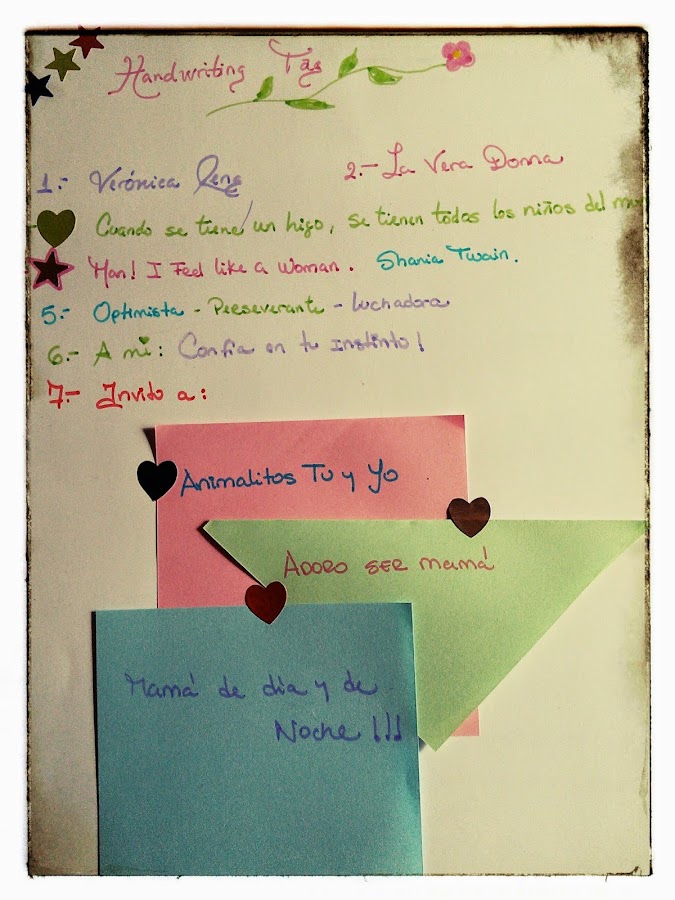 Handwriting Tag
1.- Verónica Rene
2.- La Vera Donna
Cuando se tiene un hijo, se tienen todos los niños del
Man! I Feel like a Woman. Shania Twain.
5.- Optimista - Perseverante - Luchadora
6.- A mi: Confia en tu instinto!
7.- Invito a:
Animalitos Tu y Yo
Adoro ser mamá
Mamá de día y de
Noche!!!